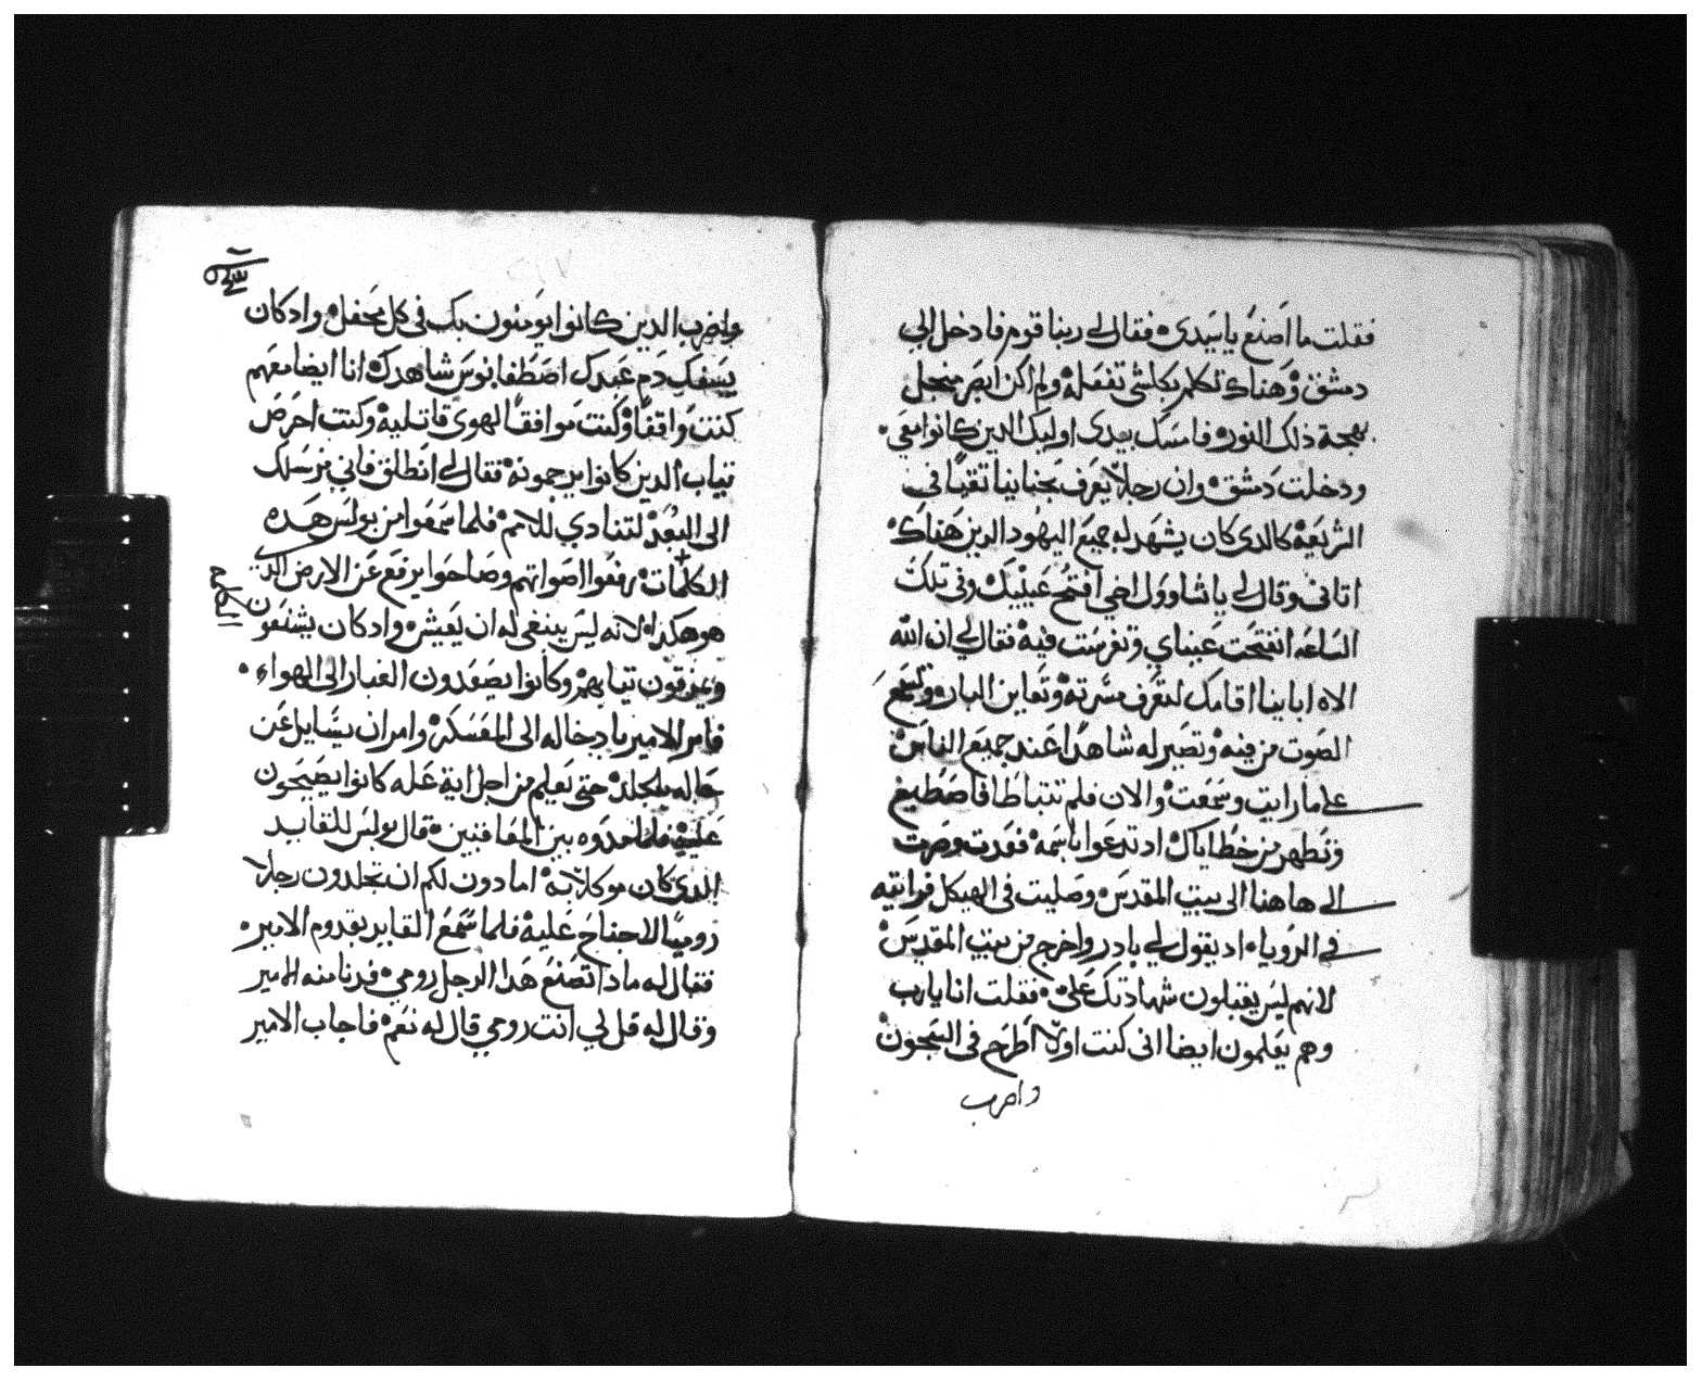 فقلت ما اصنع ياسيدى فقال لى ربنا قوم فادخل الى
دمشق وهناك تكلم بكلشى تفعله ولم اكن ابصر من جل
بهجة ذلك النور فامسك بيدى اوليك الدين كانوا معي
ودخلت دمشق وان رجلا يعرف بحنانيا تقيا في
الشريعة كالدى كان يشهد له جميع اليهود الدين هناك
اتانى وقال لى ياشاوول اخي افتح عينيك وفى تلك
الساعه انفتحت عيناي وتفرست فيه فقال لي ان الله
الاه اباينا اقامك لتعرف مسرته وتعاين البار وتسمع
الصوت من فيه وتصير له شاهدا عند جميع الناس
على ما رايت وسمعت والان فلم تتباطا فاصطبغ
وتطهر من خطاياك اد تدعوا باسمه فعدت وصرت
الى هاهنا الى بيت المقدس وصليت فى الهيكل فرايته
في الرويا اد يقول لي بادر واخرج من بيت المقدس
لانهم ليس يقبلون شهادتك على فقلت انا يارب
وهم يعلمون ايضا انى كنت اولا اطرح فى السجون
واضرب
واضرب الدين كانوا يومنون بك فى كل محفل واد كان
يسفك دم عبدك اصطفانوس شاهدك انا ايضا معهم
كنت واقفا وكنت موافقا لهوى قاتليه وكنت احرض
تياب الدين كانوا يرجمونه فقال لى انطلق فاني مرسلك
الى البعد لتنادي للامم فلما سمعوا من بولس هده
الكلمات رفعوا اصواتهم وصاحوا يرفع عن الارض الدى
هو هكدا لانه ليس ينبغى له ان يعيش واد كان يشنعون
ويمزقون تيابهم وكانوا يصعدون الغبار الى الهواء
فامر الامير بادخاله الى المعسكر وامر ان يسايل عن
حاله بالجلد حتى يعلم من اجل اية عله كانوا يصيحون
عليه فلما مدوه بين المعاقبين قال بولس للقايد
الدى كان موكلا به امادون لكم ان تجلدون رجلا
روميا لا جناح عليه فلما سمع القايد بقدوم الامير
فقال له مادا تصنع هدا الرجل رومي فدنا منه الامير
وقال له قل لي انت رومي قال له نعم فاجاب الامير